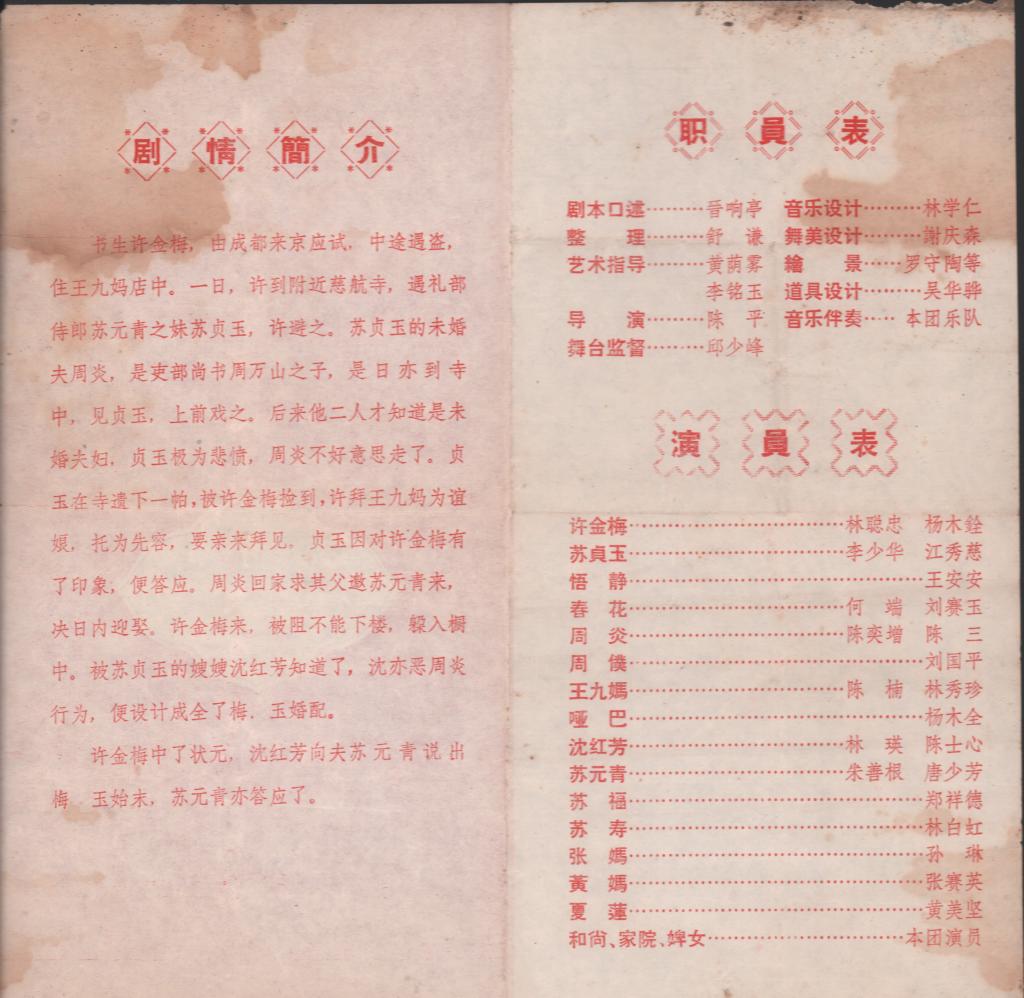 剧情簡介
书生许金梅，由成都来京应试，中途遇盗，
住王九妈店中。一日，许到附近慈航寺，遇礼部
侍郎苏元青之妹苏贞玉，许避之。苏贞玉的未婚
夫周炎，是吏部尚书周万山之子，是日亦到寺
中，见贞玉，上前戏之。后来他二人才知道是未
婚夫妇，贞玉极为悲愤，周炎不好意思走了。贞
玉在寺遗下一帕，被许金梅捡到，许拜王九妈为谊
娘，托为先容，要亲来拜见。贞玉因对许金梅有
了印象，便答应。周炎回家求其父邀苏元青来，
决日内迎娶。许金梅来，被阻不能下楼，躱入橱
中。被苏贞玉的嫂嫂沈红芳知道了，沈亦恶周炎
行为，便设计成全了梅．玉婚配。
许金梅中了状元，沈红芳向夫苏元青说出
梅．玉始末，苏元青亦答应了。
职員表
剧本口述………晋响亭
整　理………舒　谦
艺术指导………黄荫雾
李铭玉
导　演………陈　平
舞台监督………邱少峰
音乐设计………林学仁
舞美设计………謝庆森
繪　景……罗守陶等
道具设计………吴华骅
音乐伴奏……本团乐队
演員表
许金梅………林聪忠　杨木銓
苏貞玉………李少华　江秀慈
悟　静………王安安
春　花………何　端　刘赛玉
周　炎………陈奕增　陈　三
周　僕………刘国平
王九媽………陈　楠　林秀珍
哑　巴………杨木全
沈红芳………林　瑛　陈士心
苏元青………朱善根　唐少芳
苏　福………郑祥德
苏　寿………林白虹
张　媽………孙　琳
黃　媽………张赛英
夏　蓮………黄美坚
和尙、家院、婢女………本团演员